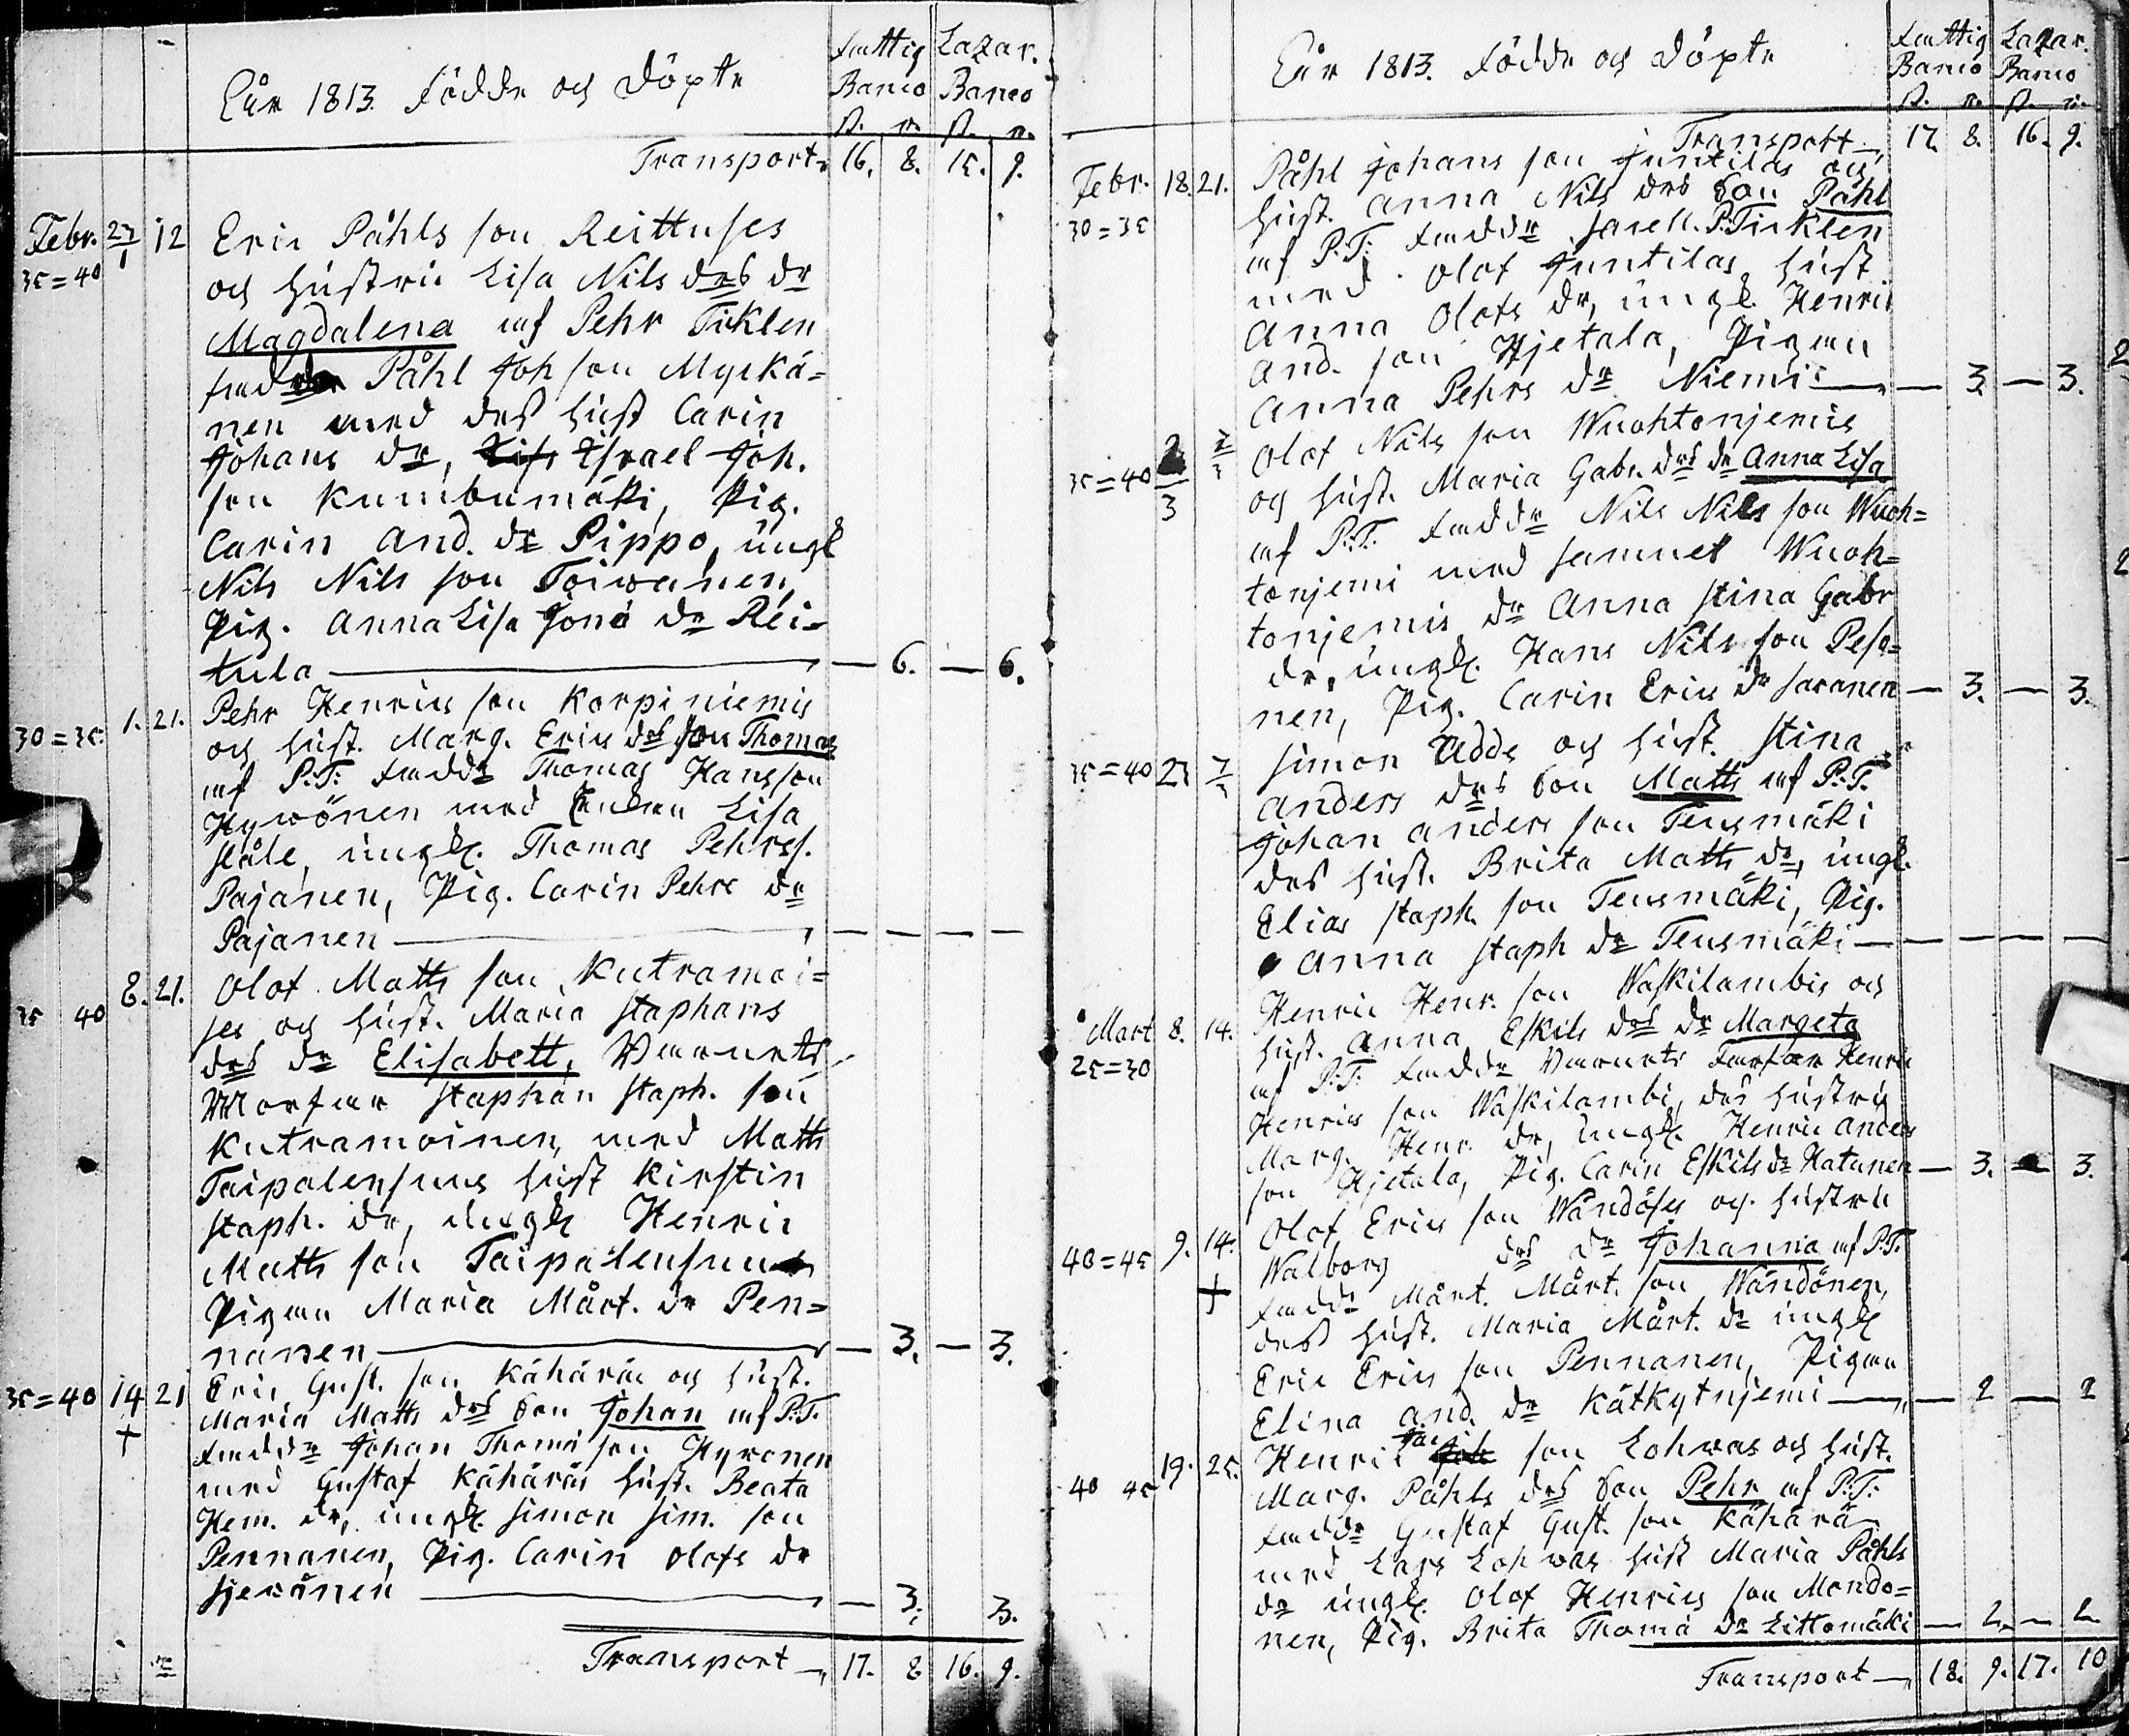 Åår 1813. Födde och Döpte
Fattig Lazar.
Banco Banco
ß. r. ß. r.
Transport 16. 8. 15. 9.
Febr. 27/1 12 Eric Påhls son Reittuses
35=40 och hustru Lisa Nils drs dr
Magdalena af Pehr Ticklen
Fadd Påhl Joh son Myckä=
nen med des hust Carin
Johans dr, Israel Joh.
son Kumbumäki, Pig.
Carin And. dr Pippo, ungk
Nils Nils son Toiwanen,
Pig. Anna Lisa Jona dr Rei=
tula — 6. — 6.
30=35. 1. 21. Pehr Henrics son Korpiniemis
och hust. Marg. Erics drs son Thomas
af P.T. Faddr Thomas Hansson
Hywönen med Enkan Lisa
Ståle, ungk. Thomas Pehrss.
Pajanen, Pig. Carin Pehrs dr
Pajanen — — — —
8. 21. Olof Matts son Kutramoi=
35 40 ses och hust. Maria Staphans
drs dr Elisabett, Barnets
Morfar Staphan Staph. son
Kutramoinen, med Matts
Taipalensuus hust Kirstin
Staph. dr, ungk Henric
Matts son Taipalensuu
Pigan Maria Mårt. dr Pen=
nanen — 3. — 3.
35=40 14 21 Eric Gust. son Kähäräs och hust.
+ Maria Matts drs son Johan af P.T.
Faddr Johan Thoma son Hyvonen
med Gustaf Kähäräs hust. Beata
Hem. dr, ungk. Simon Sim. son
Pennanen, Pig. Carin Olofs dr
— 3. 3.
Transport 17. 8 16. 9.
Åår 1813. Födde och Döpte
Fattig Lazar.
Banco Banco
ß. r. ß. r.
Transport 17. 8. 16. 9.
Febr. 18. 21. Påhl Johans son Juntilas och
30=35 hust. Anna Nils drs son Påhl
af P.T. Faddr P. Ticklen
med Olof Juntilas hust
Anna Olofs dr, ungk. Henric
And. son Hjetala, Pigan
Anna Pehrs dr Niemi — 3. — 3.
Olof Nils son Wuohtonjemis
35=40 och hust. Maria Gabr. drs dr Anna Lisa
3 af P.T. Faddr Nils Nils son Wuoh=
tonjemi med Samuel Wuoh=
tonjemis dr Anna Stina Gabr
dr, ungk. Hans Nils son Peso=
nen, Pig. Carin Erics dr Saranen — 3. — 3.
Simon Udde och hust. Stina
35=40 23 Anders drs son Matts af P.T.
Johan Anders son Teusmäki
des hust. Brita Matts dr, ungk.
Elias Staph. son Teusmäki, Pig.
Anna Staph dr Teusmäki — — — —
Henric Henr. son Waskilambis och
Mart 8. 14. hust. Anna Eskils drs dr Margeta
25=30 af P.T. Faddr Barnets Farfar Henric
Henrics son Waskilambi, des hustru
Marg. Henr. dr, ungk. Henric Anders
son Hjetala, Pig. Carin Eskils dr Hatunen — 3. — 3.
Olof Erics son Wändöses och hustru
40=45 9. 14. Walborg drs dr Johanna af P.T.
+ Faddr Mårt. Mårt. son Wändönen,
des hust. Maria Mårt. dr ungk
Eric Erics son Pennanen, Pigan
Elina And. dr Kätkytnjemi — 2 — 2
19. 25. Henric son Lohwas och hust.
40 45 Marg. Påhls drs son Pehr af P.T.
Faddr Gustaf Gust. son Kähärä
med Lars Lohwas hust Maria Påhls
dr ungk. Olof Henrics son Mondo=
nen, Pig. Brita Thoma dr Littomäki — 2. — 2
Transport 18. 9. 17. 10